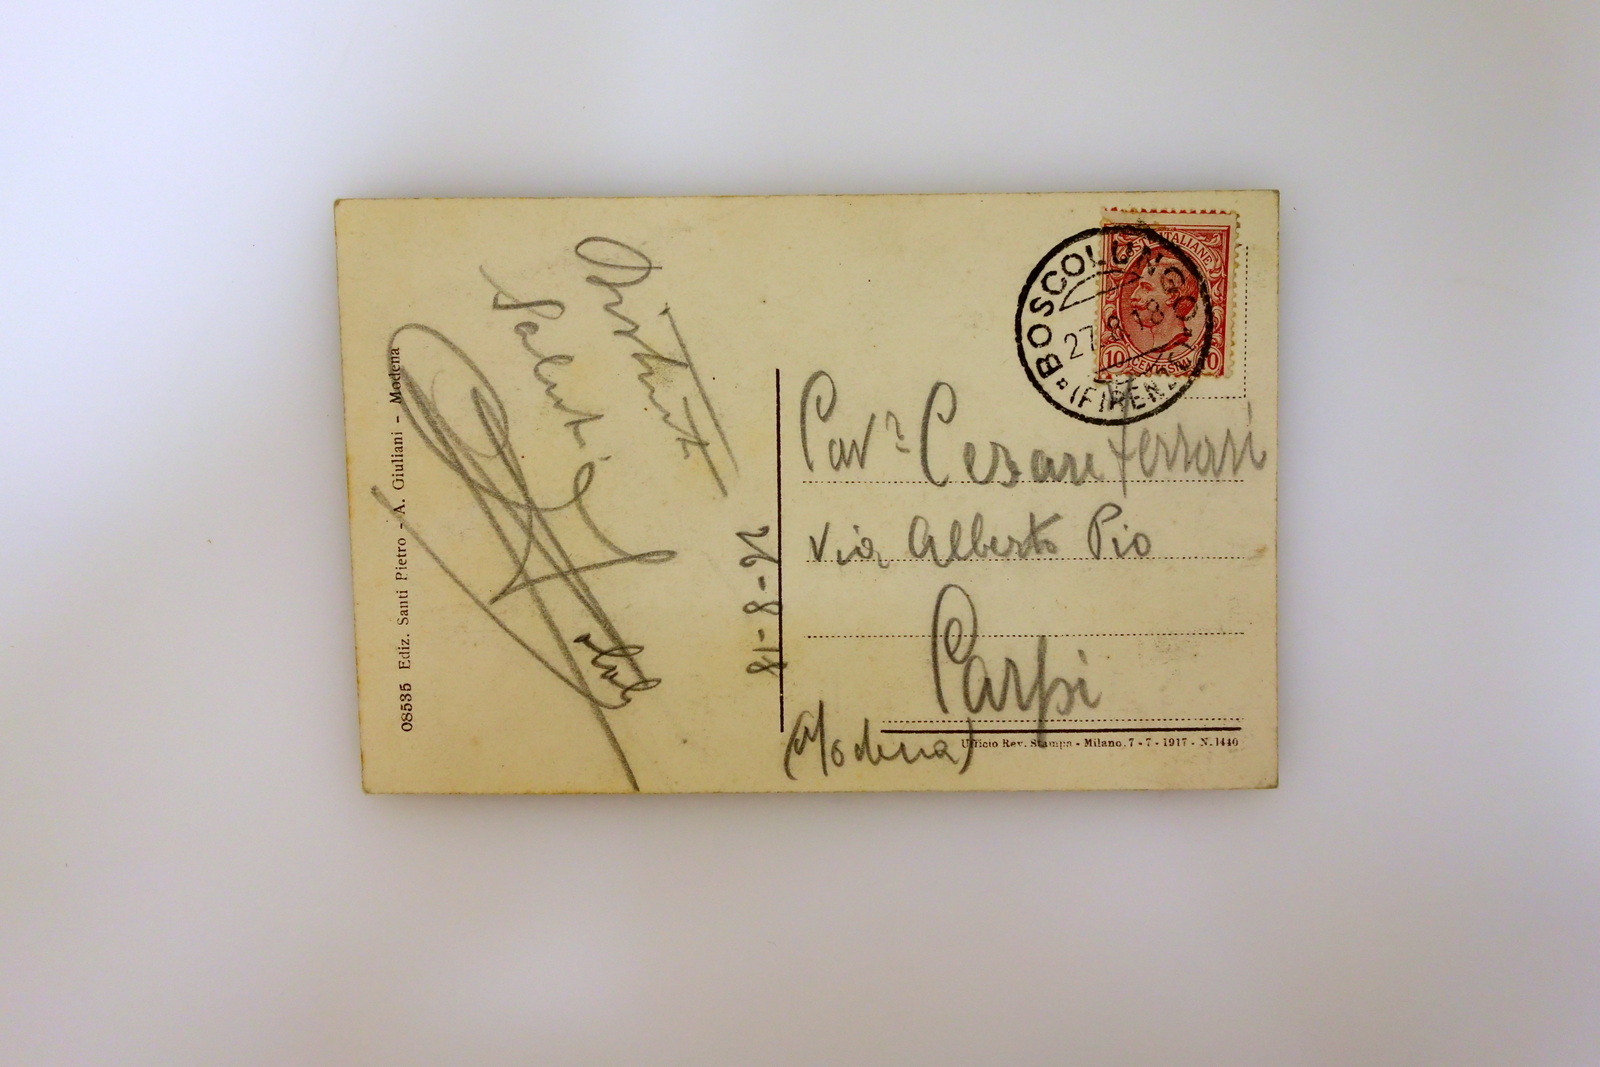 Distinti
Saluti
26-8-18
08535 Ediz. Santi Pietro - A. Giuliani - Modena
POSTE ITALIANE
10 CENTESIMI 10
BOSCOLUNGO
27.8.18
(FIRENZE)
Cav.ᵉ Cesare Ferrari
Via Alberto Pio
Carpi
(Modena)
Ufficio Rev. Stampa - Milano, 7 - 7 - 1917 - N. 1440